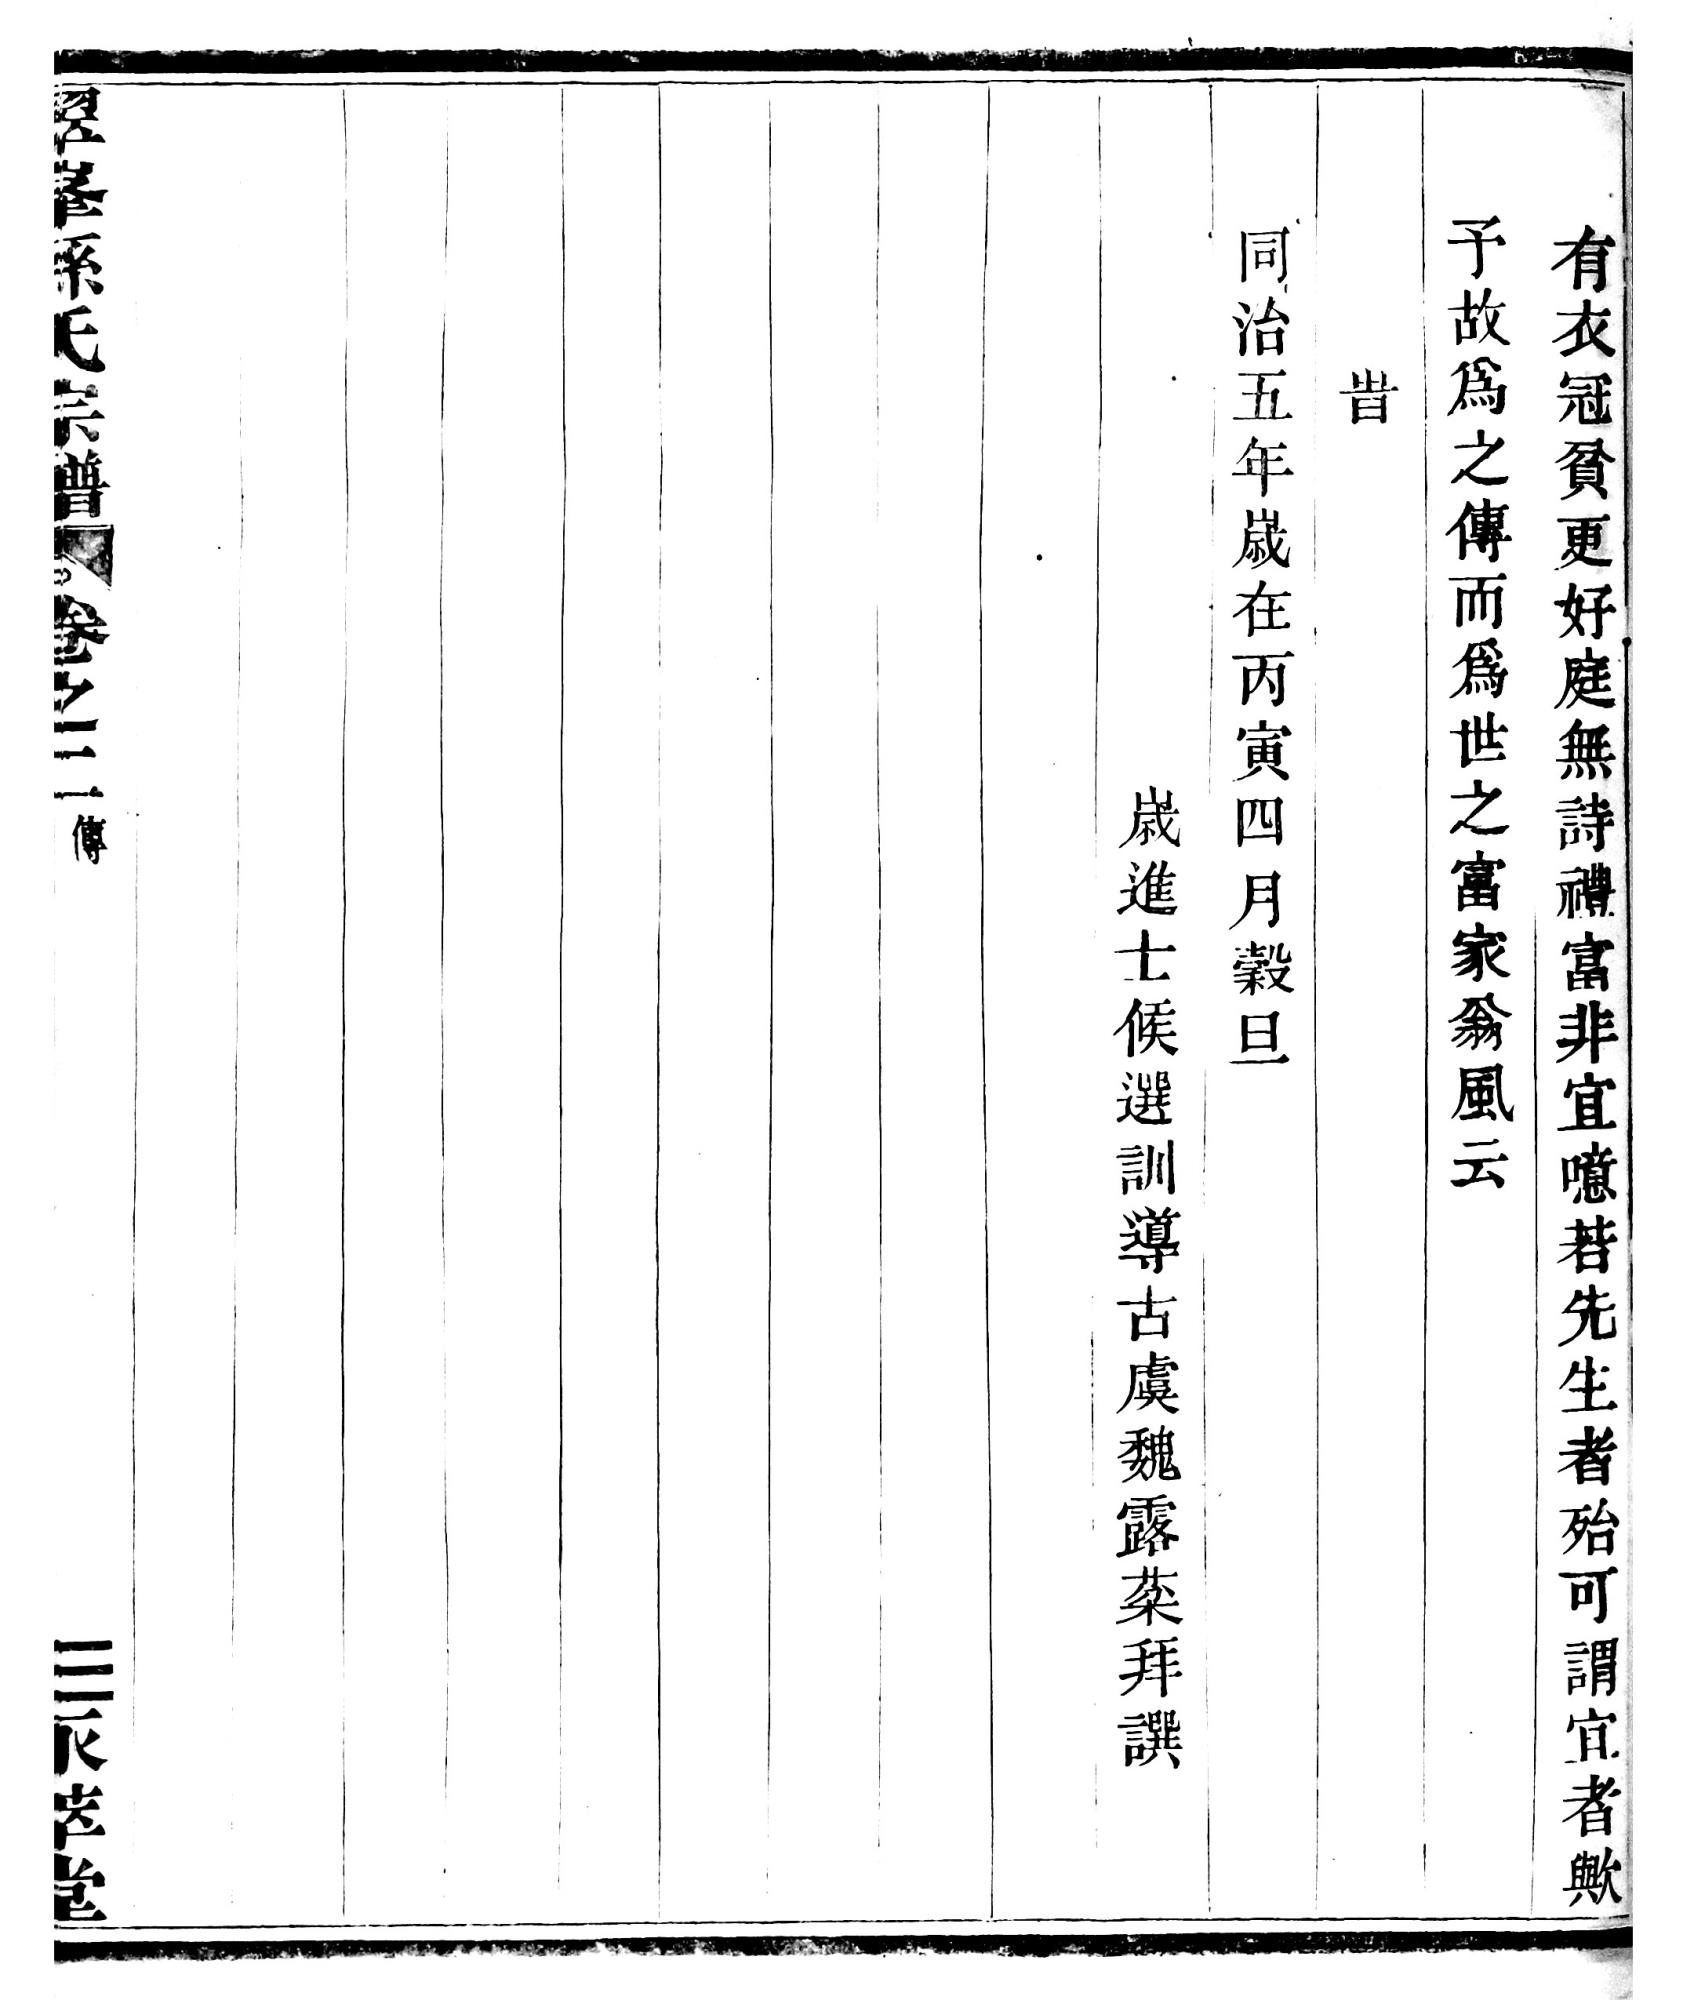 有衣冠貧更好庭無詩禮富非宜噫若先生者殆可謂宜者歟
予故爲之傳而爲世之富家翁風云
旹
同治五年歲在丙寅四月穀旦
歲進士候選訓導古虞魏露棻拜譔
峯孫氏宗譜 卷之二 傳
三 萃堂